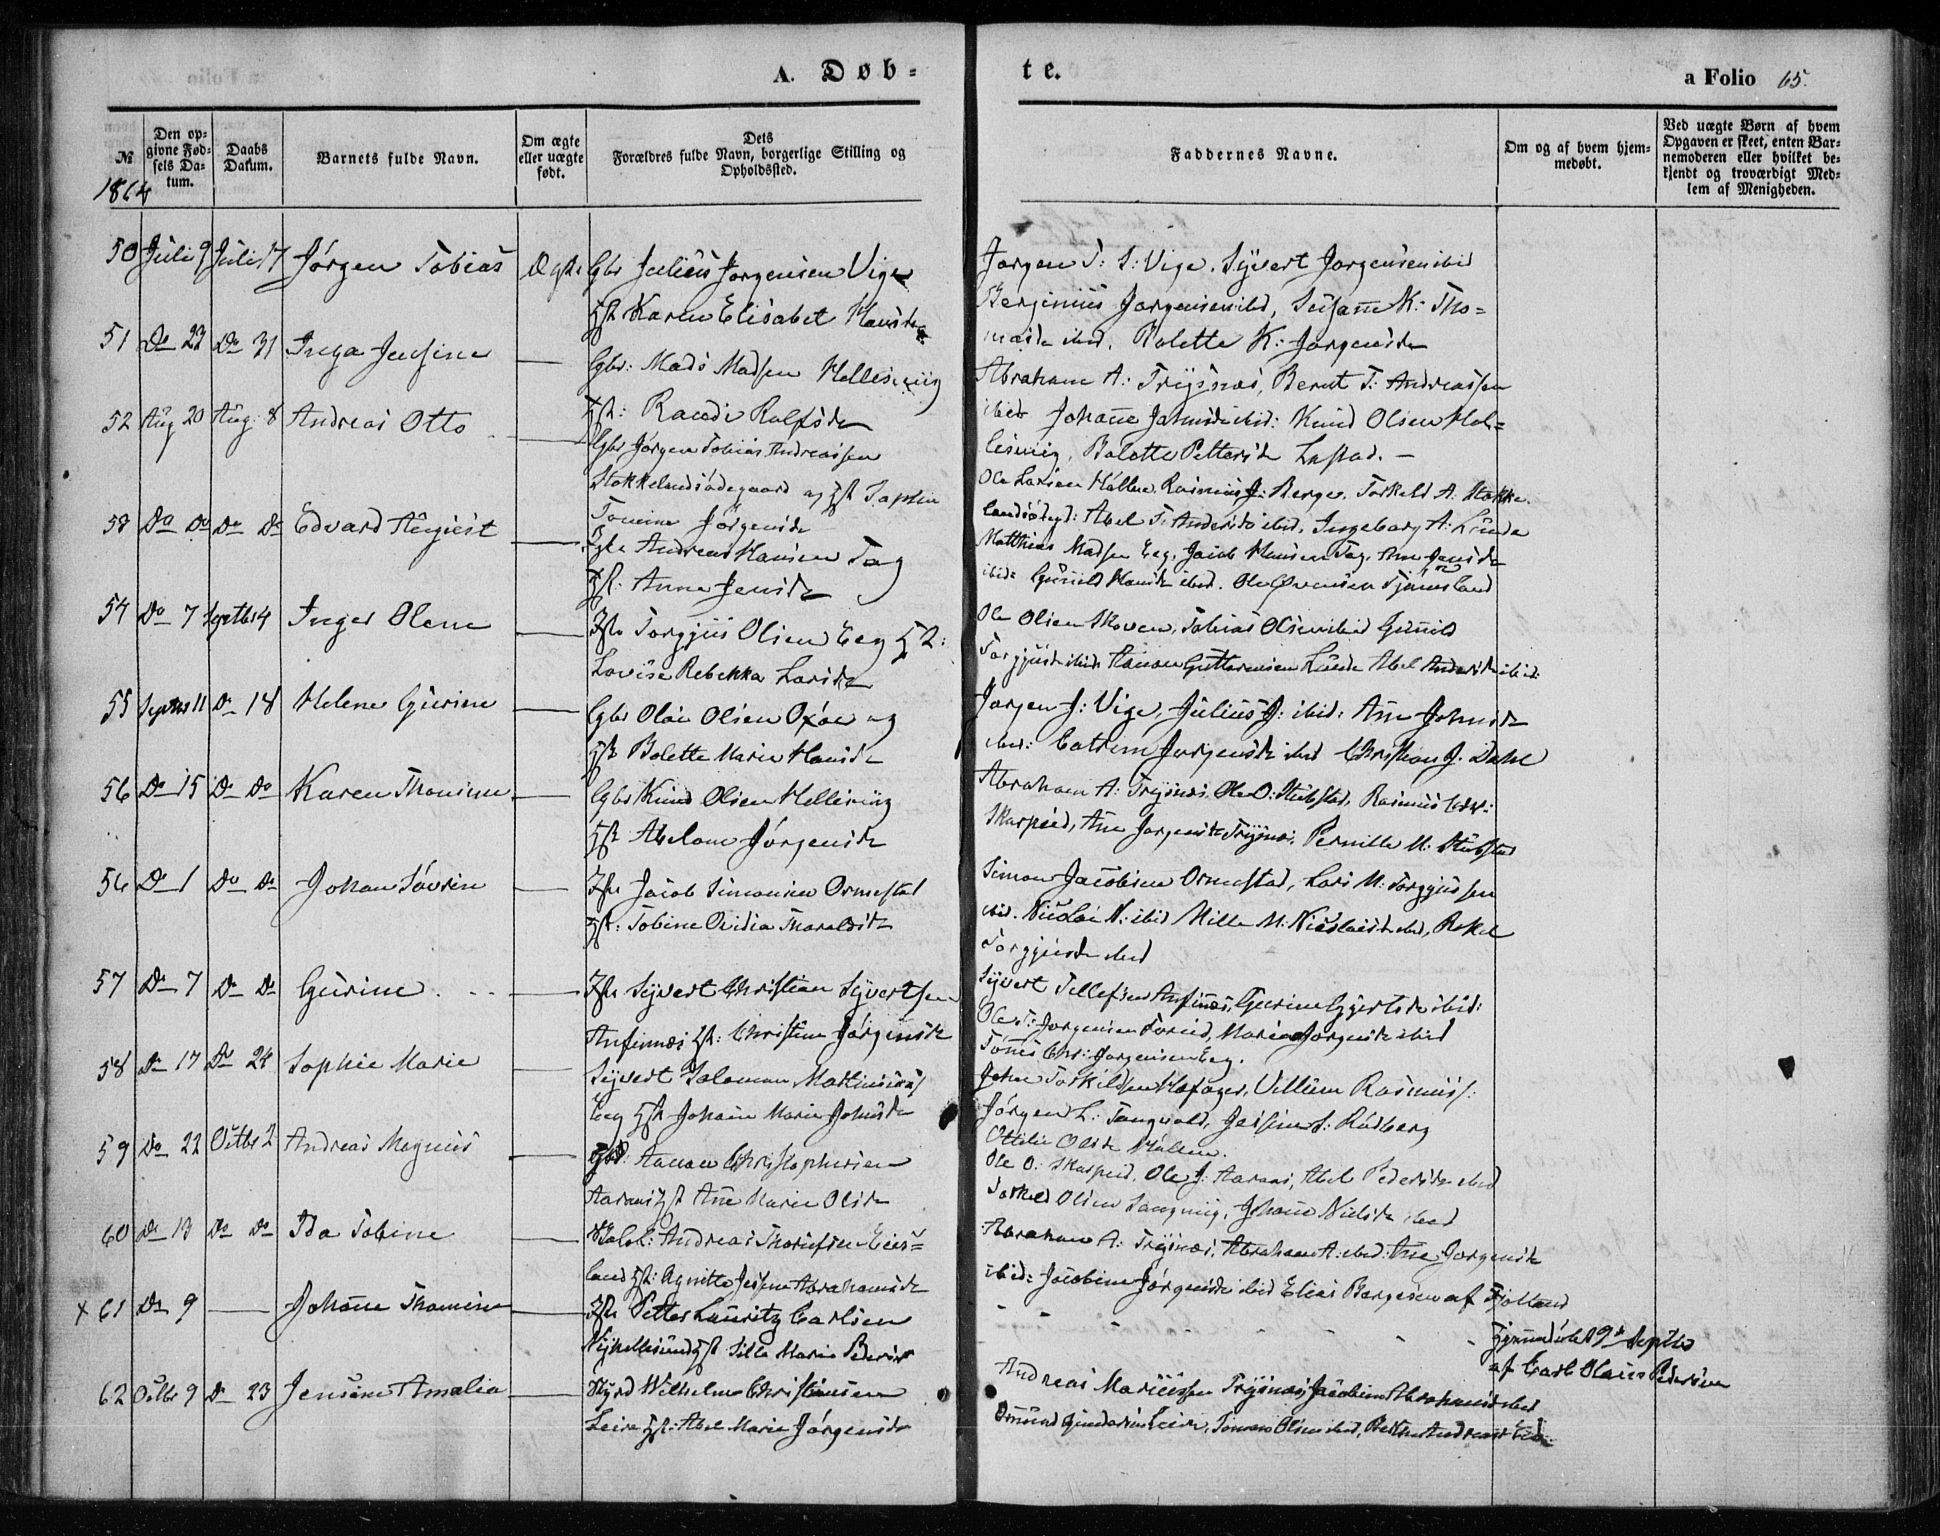 A. Døb-
te.
a Folio 65.
№
Den op-
givne Fød-
sels Da-
tum.
Daabs
Datum.
Barnets fulde Navn.
Om ægte
eller uægte
født.
Dets
Forældres fulde Navn, borgerlige Stilling og
Opholdssted.
Faddernes Navne.
Om og af hvem hjem-
medøbt.
Ved uægte Børn af hvem
Opgaven er skeet, enten Bar-
nemoderen eller hvilket be-
kjendt og troværdigt Med-
lem af Menigheden.
1864
50 Juli 9 Juli 17 Jørgen Tobias Ægte Gbr Julius Jørgensen Vige
Hst Karen Elisabet Hansdr
Jørgen T: S: Vige, Syvert Jørgensen ibid
Jørgensen ibid, Susanne K: Tho-
masdr ibid, Bolette K: Jørgensdr
51 Do 23 Do 31 Inga Jensine — Gbr: Mads Madsen Hellesviig
Hst: Randi Rolfsdr
Abraham A: Trysnæs, Bernt T: Andreassen
ibid Johanne ibid: Knud Olsen Hel-
lesviig, Bolette Pettersdr
52 Aug 20 Aug: 8 Andreas Otto — Gbr Jørgen Tobias Andreassen
Stokkelandsødegaard og Hst Sophie
Tomine Jørgensdr
Ole Larsen Høllen, Rasmus J: Berge, Torkeld A. Stokke-
landsødegd: Abel T: Andersdr ibid, Ingeborg A: Lunde
53 Do Do Do Do Edvard August — Andreas Hansen Tag
Hst: Anne Jensdr
Matthias Madsen Eeg, Jacob Hansen Tag, Ane Jensdr
ibid Gunild Hansdr ibid. Ole Tjomsland
54 Do 7 Septbr 4 Inger Olene — Torgjus Olsen Eeg Hst:
Lovise Rebekka Larsdr
Ole Olsen Skoven, Tobias Olsen ibid Gunild
Torgjusdr ibid Aanon Guttormsen Lunde Abel Andersdr ibid:
55 Septbr 11 Do 18 Helene Gurine — Gbr Olai Olsen Oxøe og
Hst Bolette Marie Hansdr
Jørgen J: Vige, Julius J: ibid: Ane Johnsdr
ibid: Catrine Jørgensdr ibid Christian J. Dahl
56 Do 15 Do Do Karen Thomine — Gbr Knud Olsen Helleviig
Hst Abelone Jørgensdr
Abraham A: Trysnæs, Ole O: Stubstad, Rasmus
Skarpeid, Ane Jørgensdr Trysnæs, Pernille M: Stubstad
56 Do 1 Do Do Johan Søvrin — Jacob Simonsen Ormestad
Hst: Tobine Ovidia Tharaldsdr
Simon Jacobsen Ormestad, Lars M: Torgjussen
ibid. Nicolai N: ibid Mille M: Nicolaisdr ibid, Rakel
Torgjusdr ibid
57 Do 7 Do Do Gurine — Syvert Christian Syvertsen
Aafinnæs Hst: Christine Jørgensdr
Syvert Tellefsen Gurine ibid:
Ole T: Jørgensen Toreid, Maria Jørgensdr ibid
Tønnes Chr: Jørgensen Eeg.
58 Do 17 Do 24 Sophie Marie — Syvert Salomon
Eeg Hst Johanne Marie Johnsdr
John Torkildsen Villum Rasmus:
Jørgen L: Tangvald, Jensine S: Rødberg
Ottilie Olsdr Høllen.
59 Do 22 Octbr 2 Andreas Magnus — Gbr: Aanon Christophersen
Aaraas Hst Ane Marie Olsdr
Ole O: Skarpeid, Ole J: Aaraas, Abel Pedersdr ibid
Torkel Olsen Langviig, Johanne Nielsdr ibid
60 Do 13 Do Do Ida Tobine — Andreas
land Hst: Agnette Jensine Abrahamsdr
Abraham A: Trysnæs, Abraham A: ibid: Ane Jørgensdr
ibid: Jacobine Jørgensdr ibid Elias Børgesen af Fjotland
x 61 Do 9 — Johanne Thomine — Petter Lauritz Carlsen
Nyhellesund Hst Sille Marie Pedersdr
Hjemmedøbt 9de Septbr
af Carl Olaus Pedersen
62 Octbr 9 Do 23 Jensine Amalia — Wilhelm Christiansen
Leire Hst: Abel Marie Jørgensdr
Andreas Mariussen Trysnæs, Jacobine Abrahamsdr ibid
Leire, Tomas Olsen ibid,